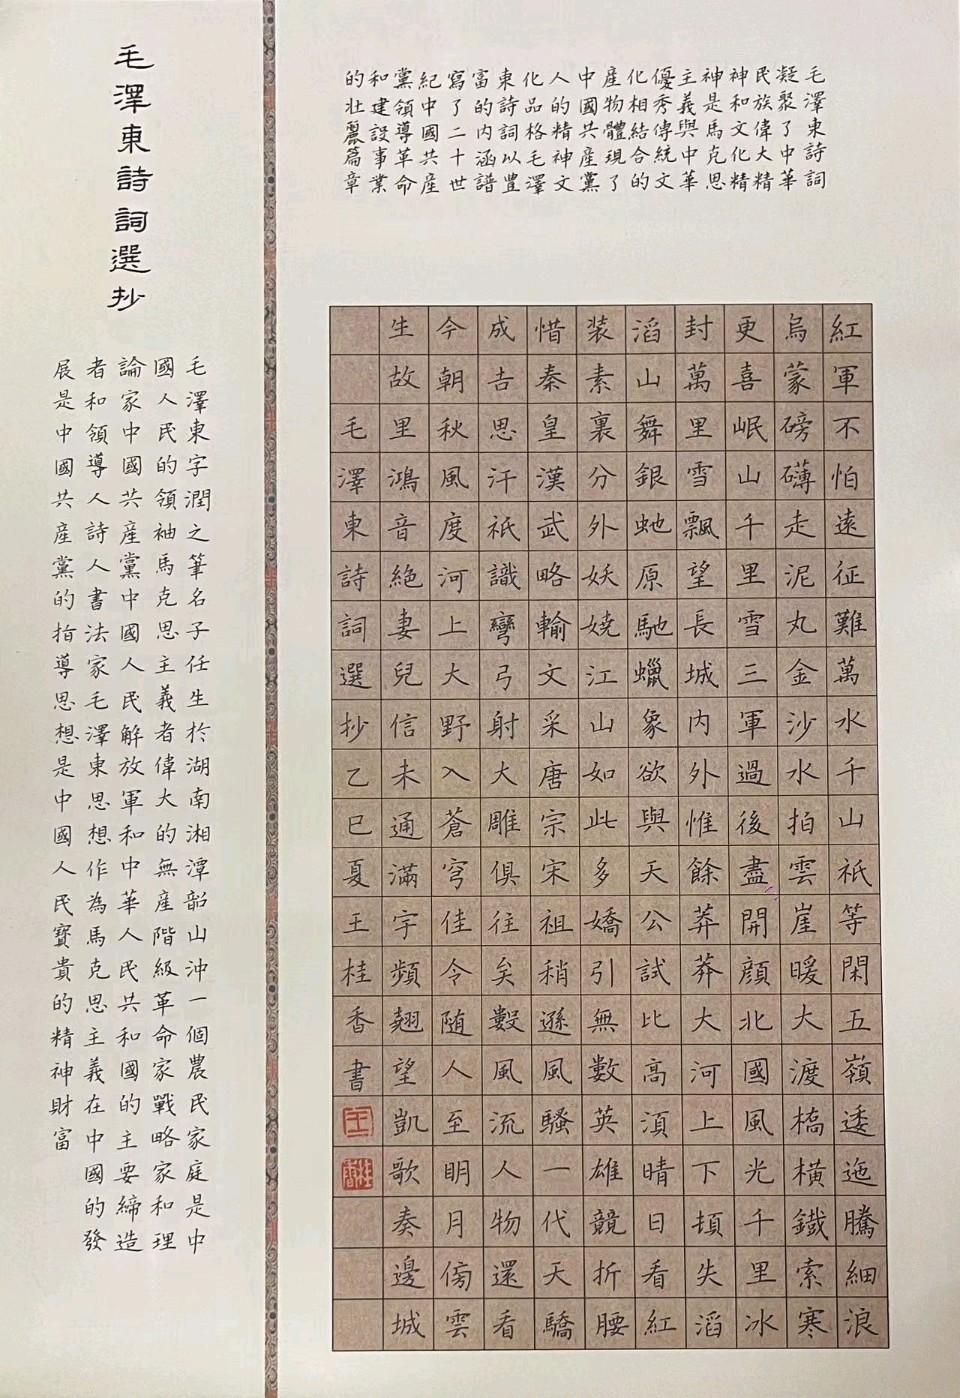 毛澤東詩詞
凝聚了中華
民族偉大精
神和文化精
神是馬克思
主義與中華
優秀傳統文
化相結合的
產物體現了
中國共產黨
人的精神文
化品格毛澤
東詩詞以豐
富的內涵譜
寫了二十世
紀中國共產
黨領導革命
和建設事業
的壯麗篇章
紅軍不怕遠征難萬水千山祇等閑五嶺逶迤騰細浪
烏蒙磅礴走泥丸金沙水拍雲崖暖大渡橋橫鐵索寒
更喜岷山千里雪三軍過後盡開顏北國風光千里冰
封萬里雪飄望長城內外惟餘莽莽大河上下頓失滔
滔山舞銀蛇原馳蠟象欲與天公試比高須晴日看紅
装素裹分外妖嬈江山如此多嬌引無數英雄競折腰
惜秦皇漢武略輸文采唐宗宋祖稍遜風騷一代天驕
成吉思汗祇識彎弓射大雕俱往矣數風流人物還看
今朝秋風度河上大野入蒼穹佳令随人至明月傍雲
生故里鴻音絕妻兒信未通滿宇頻翹望凱歌奏邊城
毛澤東詩詞選抄乙巳夏王桂香書
王
桂香
毛澤東詩詞選抄
毛澤東字潤之筆名子任生於湖南湘潭韶山沖一個農民家庭是中
國人民的領袖馬克思主義者偉大的無產階級革命家戰略家和理
論家中國共產黨中國人民解放軍和中華人民共和國的主要締造
者和領導人詩人書法家毛澤東思想作為馬克思主義在中國的發
展是中國共產黨的指導思想是中國人民寶貴的精神財富